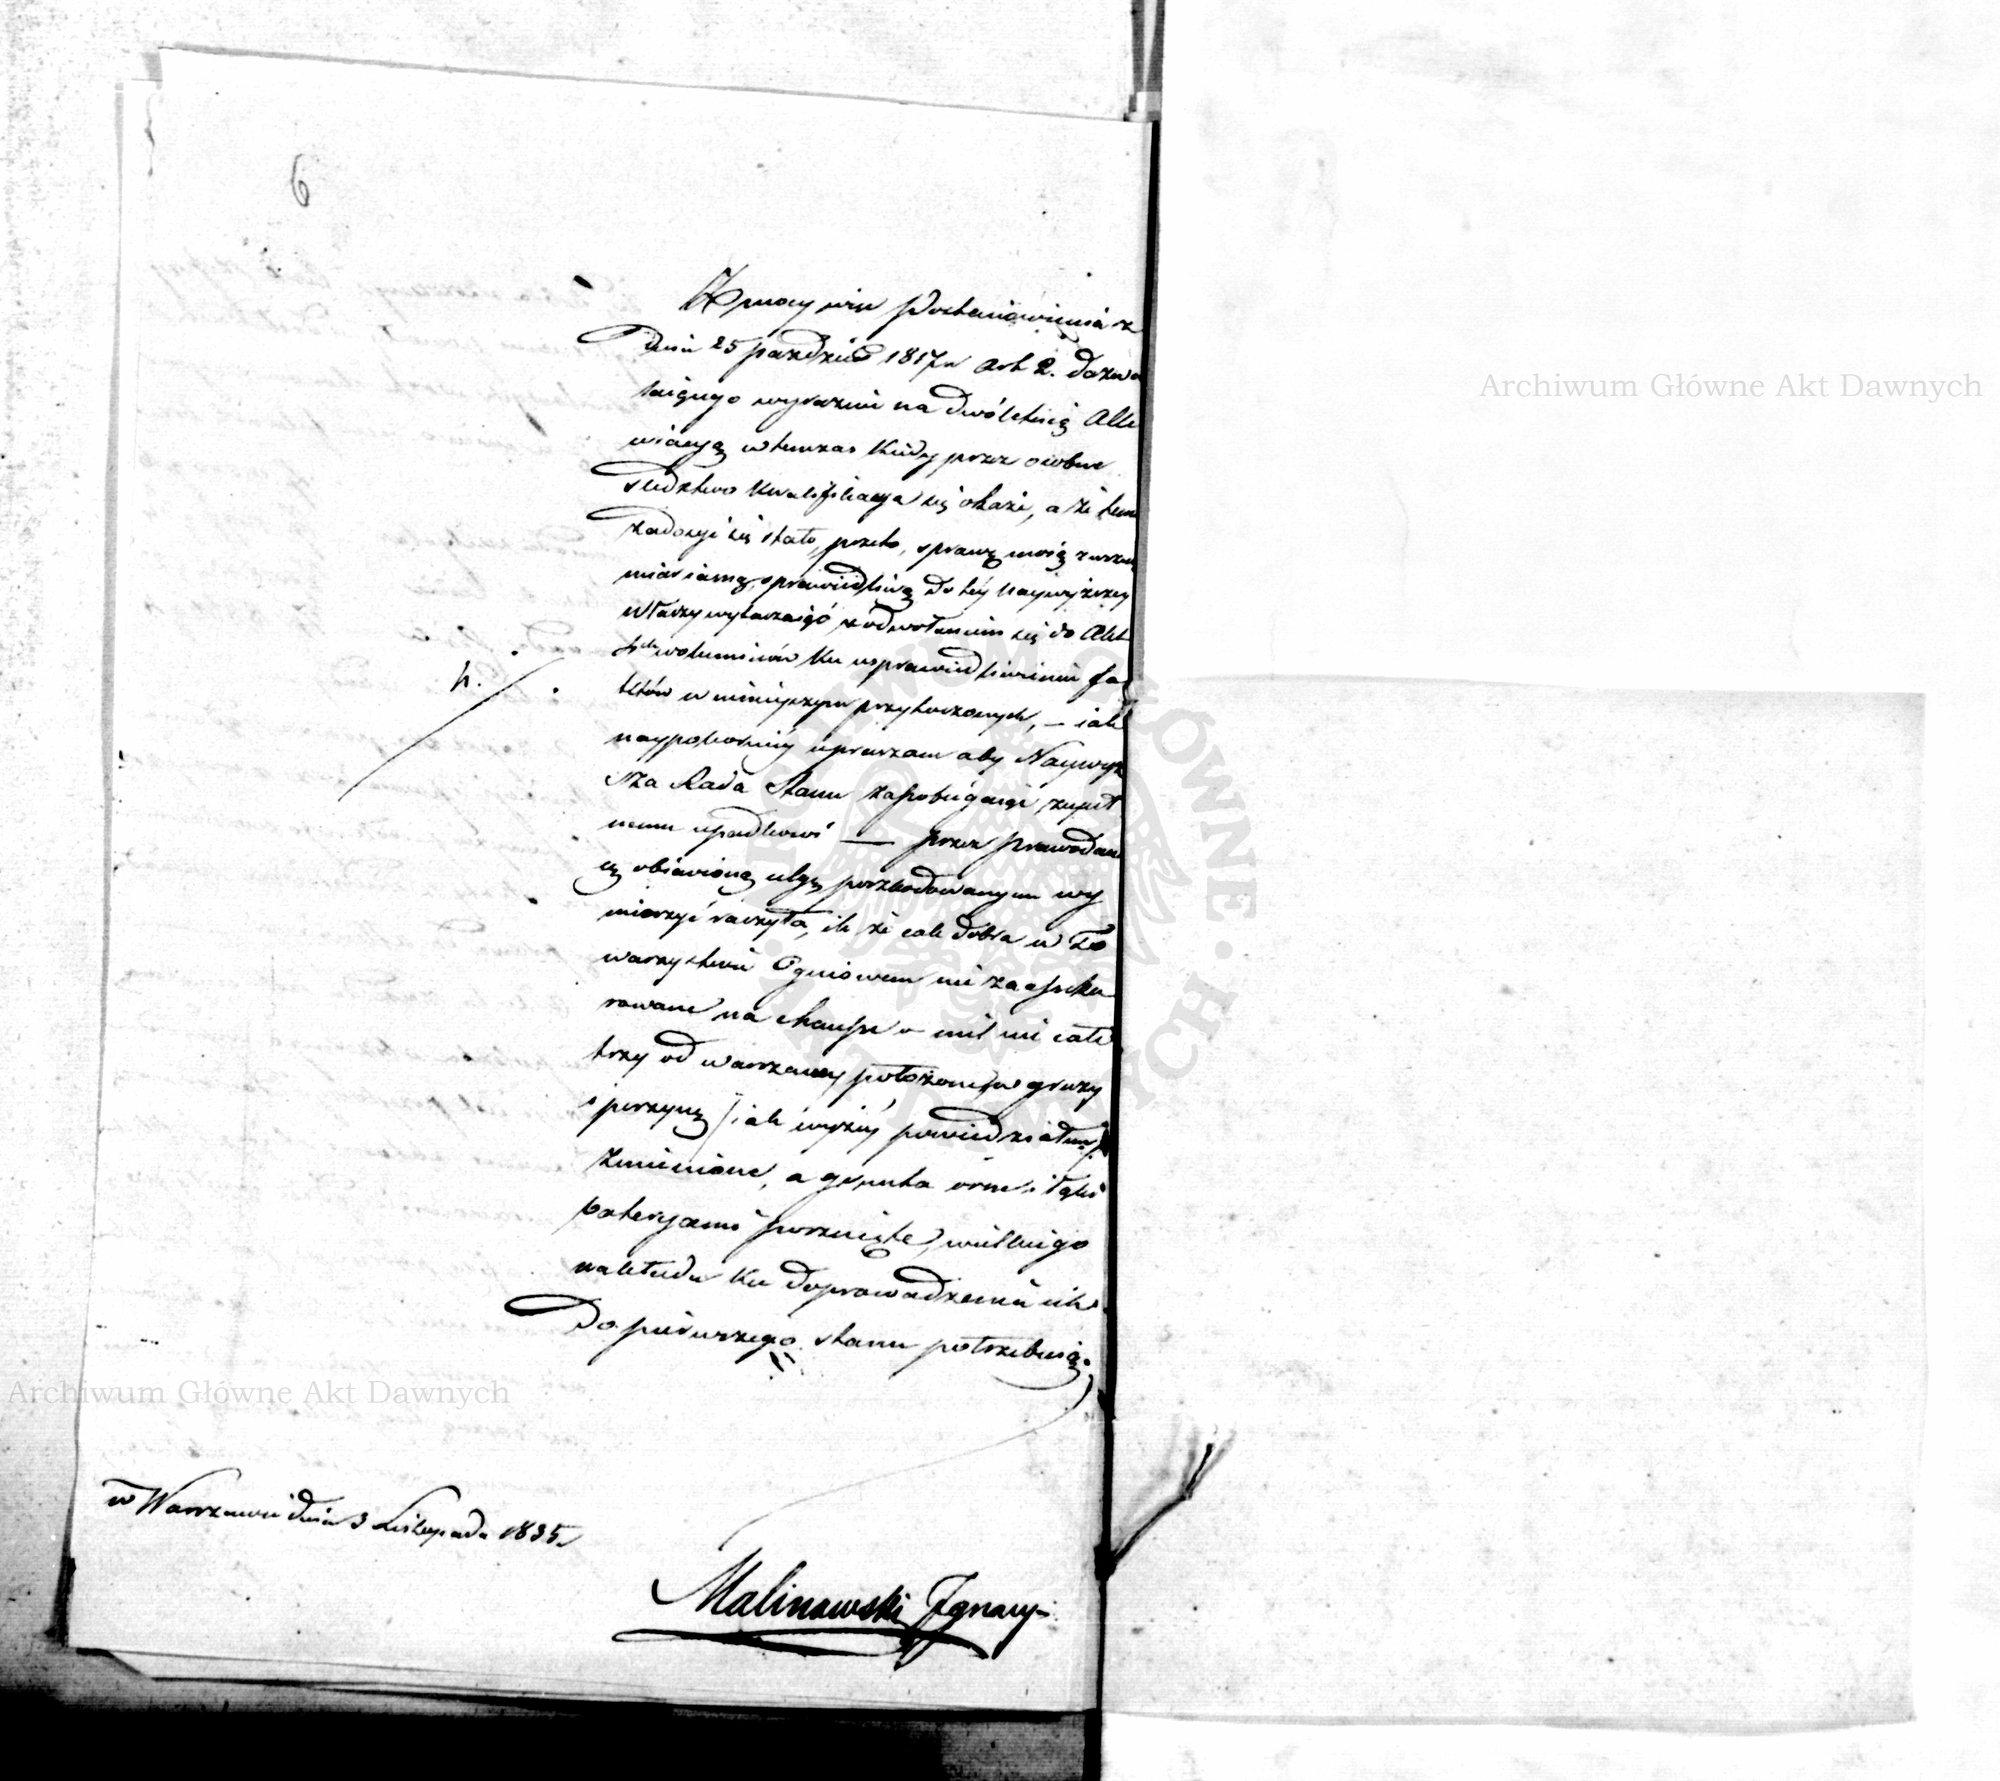 6
Z mocy więc Postanowienia z
Dnia 25 paździer 1817 r Art 2. dozwa
laiącego wyraznie na dwóletnią Alle
wiacyą wtenczas kiedy przez osobne
sledztwo kwalifikacya się okaże, a że temu
zadosyć się stało, przeto, sprawę moią zewszech
miar iasną, sprawiedliwą do tey naywyższey
Władzy wytaczaiąc z odwołaniem się do Akt
woluminów ku usprawiedliwieniu fa
któw w ninieyszym przytoczonych, — iak
naypokorniey upraszam aby Naywyż
sza Rada Stanu zapobiegaiąc zupeł
nemu upadkowi — przez prawodaw
cę obiawioną ulgę poszkodowanym wy
mierzyć raczyła, ile że całe dobra w To
warzystwie Ogniowem nie zaasseku
rowane na chaussee mil nie całe
trzy od Warszawy położone w gruzy
i perzynę / iak wyżey powiedziałem /
zmienione, a grunta orne i łąki
bateryami porznięte, wielkiego
nakładu ku doprowadzeniu ich
do pierwszego stanu potrzebuią.
w Warszawie dnia 3 Listopada 1835 r
Malinowski Ignacy
Archiwum Główne Akt Dawnych
Archiwum Główne Akt Dawnych
ARCHIWUM GŁÓWNE AKT DAWNYCH